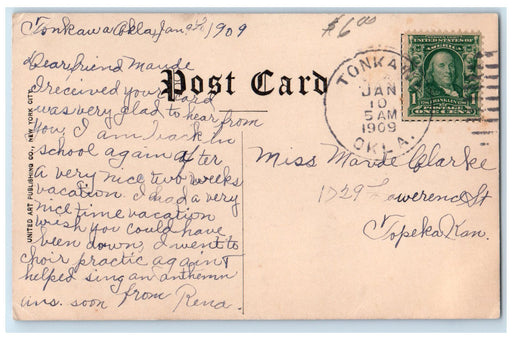 Tonkawa Okla Jan 9th, 1909
$6.00
Dear friend Maude
I received your card
was very glad to hear from
you. I am back in
school again after
a very nice two weeks
vacation. I had a very
nice time vacation
wish you could have
been down, I went to
choir practic again &
helped sing an anthemn
ans. soon from Rena.
Post Card
UNITED ART PUBLISHING CO., NEW YORK CITY.
TONKAWA
JAN
10
5 AM
1909
OKLA.
UNITED STATES OF
AMERICA
FRANKLIN
POSTAGE
1 ONE CENT 1
Miss Maude Clarke
1729 Lawerence St
Topeka Kan.